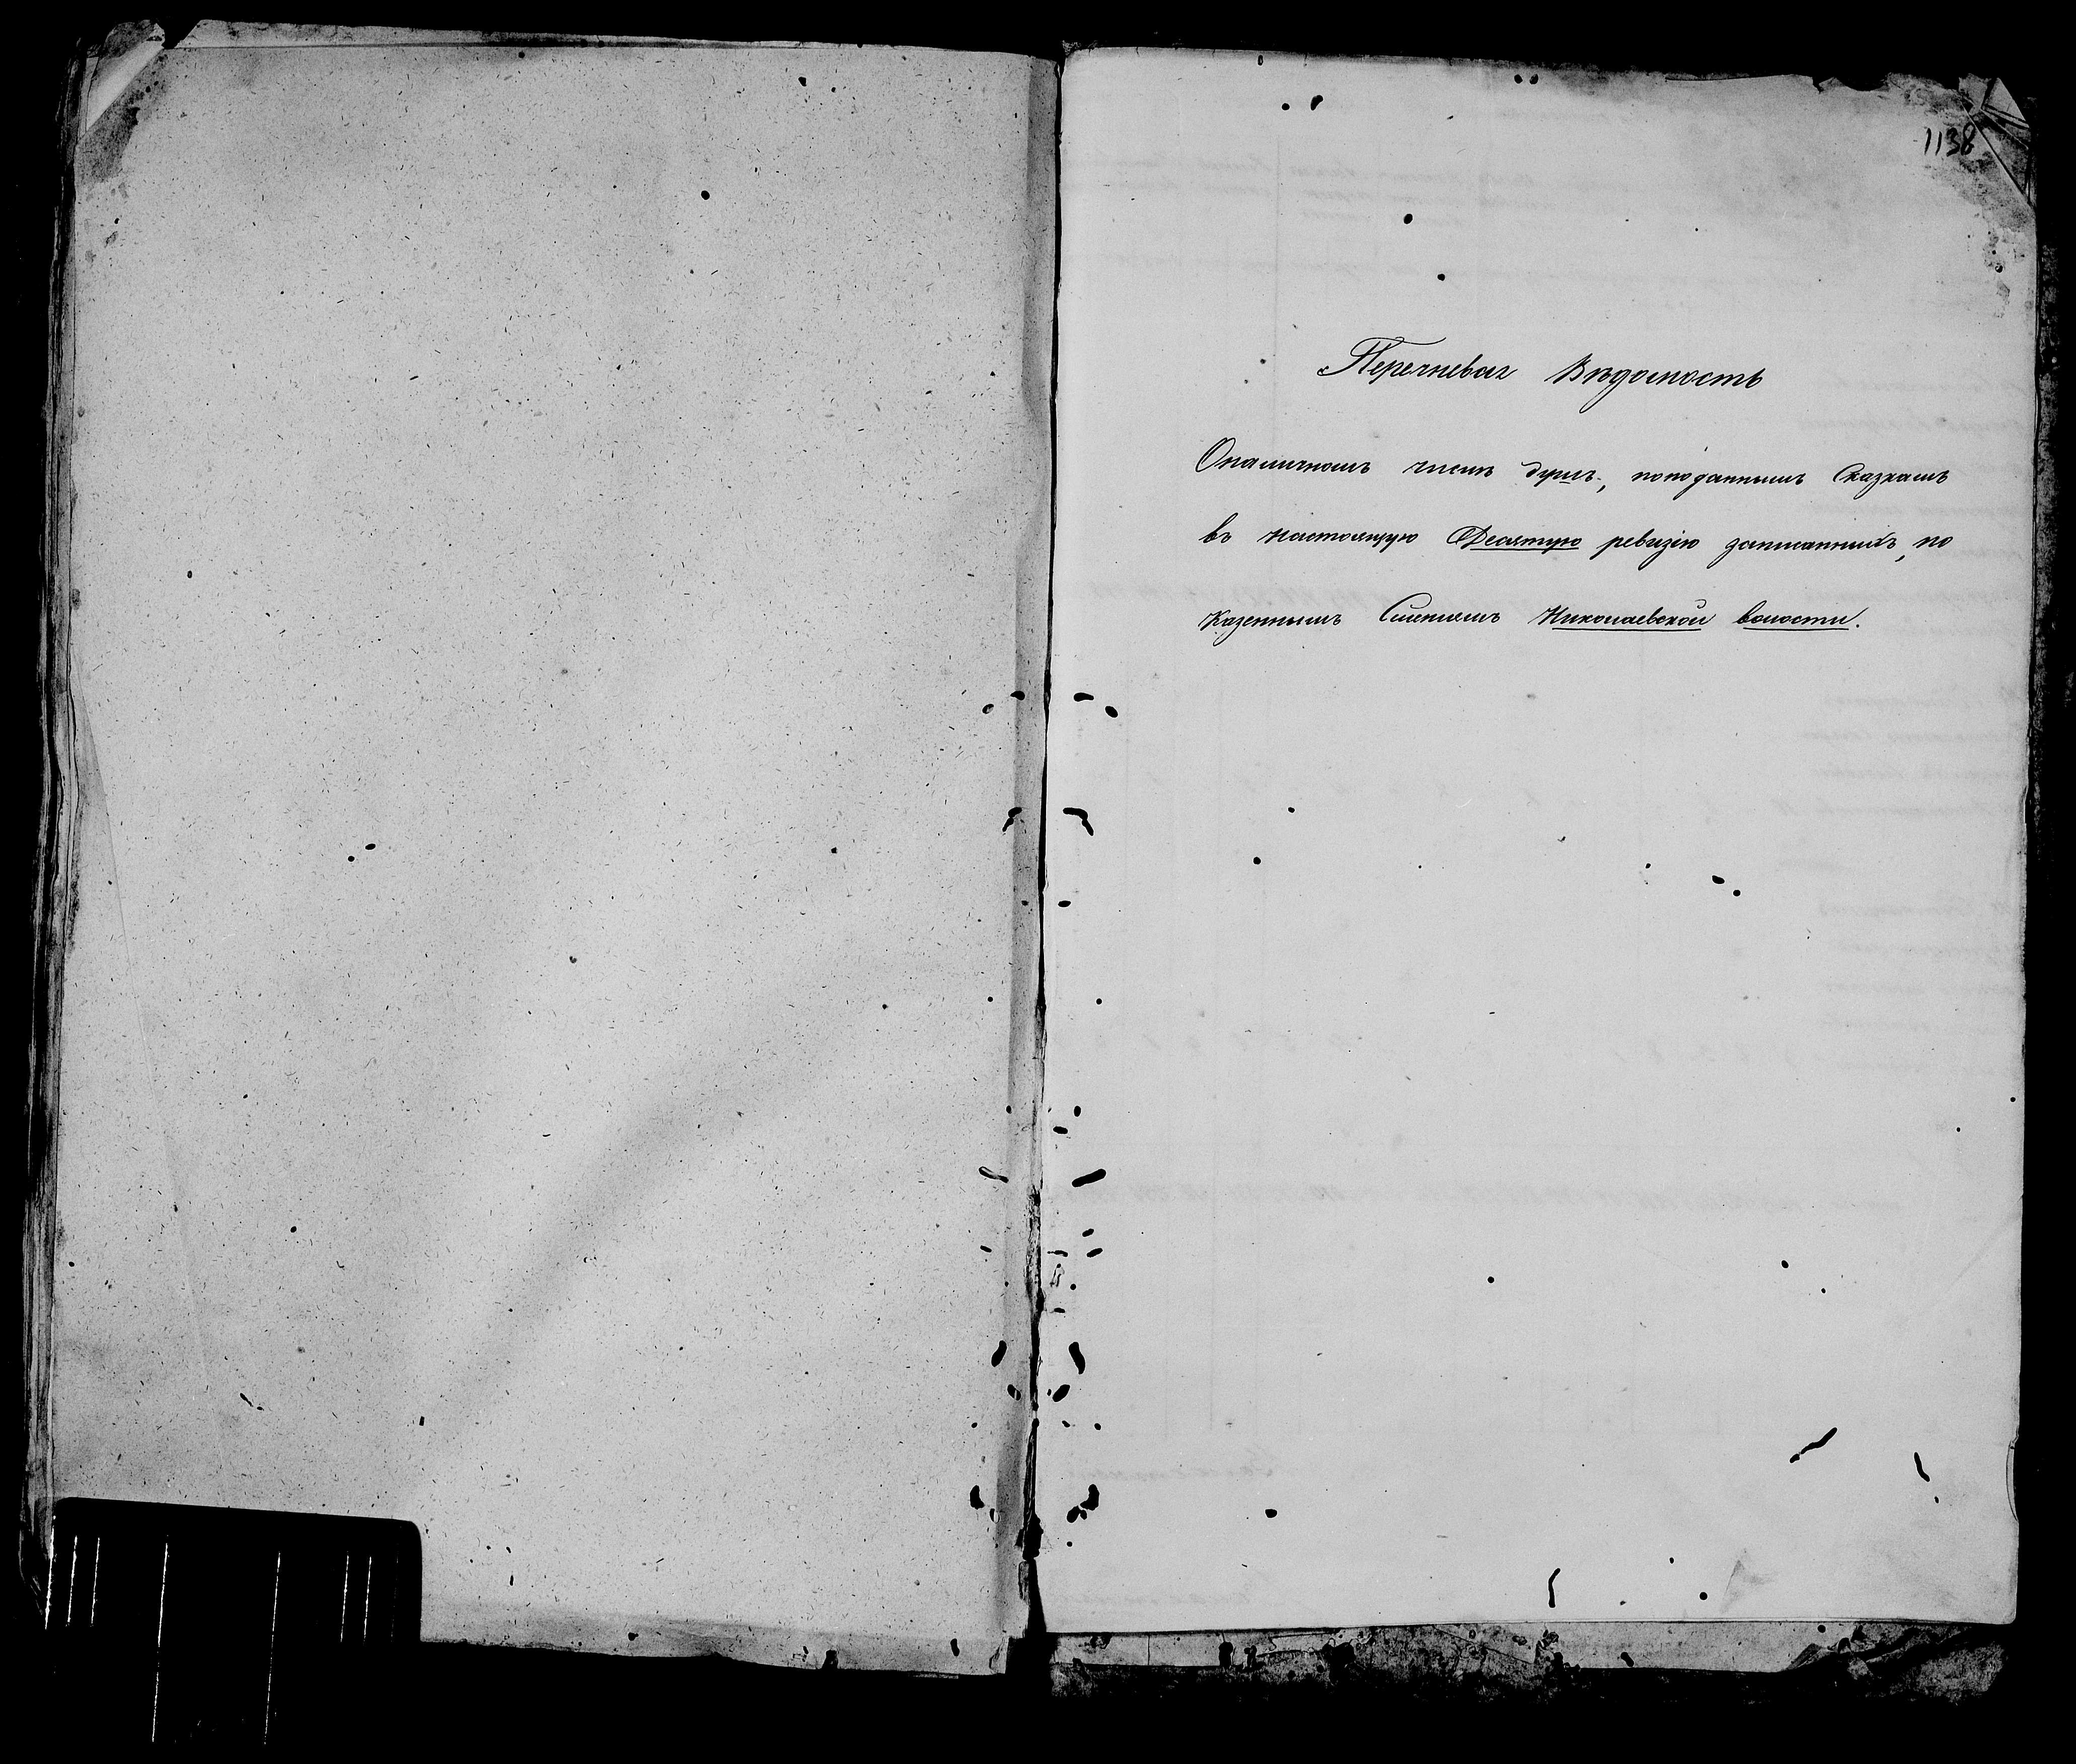 1138
Перечневая Вѣдомость
Оналичномъ числѣ душъ, поподаннымъ Сказкамъ
въ настоящую Десятую ревизію записанныхъ, по
Казеннымъ Имѣніямъ Николаевской волости.